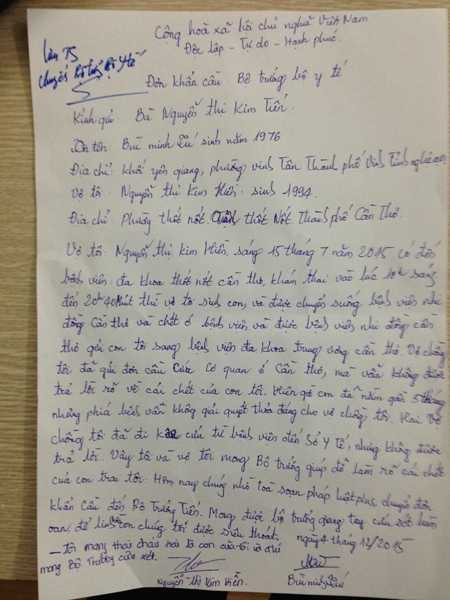 Cộng hoà xã hội chủ nghĩa Việt Nam
Độc lập - Tự do - Hạnh phúc
Chuyển Bộ Y tế
Đơn khẩn cầu Bộ trưởng bộ y tế
Kính gửi Bà Nguyễn thị Kim Tiến.
tên Bùi minh sinh năm 1976
Địa chỉ: khối yên quang, phường vinh Tân Thành phố Vinh Tỉnh nghệ an
Vợ tôi: Nguyễn thị kim Hiền: sinh 1994.
Địa chỉ Phường thốt nốt thốt Nốt Thành phố Cần Thơ.
Vợ tôi: Nguyễn thị kim Hiền, sáng 15 tháng 7 năm 2015 có đến
bệnh viện đa khoa thốt nốt cần thơ, khám thai vào lúc sáng
đến 20h 40 Phút thì vợ tôi sinh con, và được chuyển xuống bệnh viện nhi
đồng Cần thơ và chết ở bệnh viện và được bệnh viện nhi đồng cần
thơ gửi con tôi sang bệnh viện đa khoa trung ương cần thơ. Vợ chồng
tôi đã gửi đơn cầu cứu cơ quan ở Cần thơ, mà vẫn không được
trả lời rõ về cái chết của con tôi. Hiện giờ em đã nằm gần 5 tháng
nhưng phía bệnh viện không giải quyết thỏa đáng cho vợ chồng tôi. Hai vợ
chồng tôi đã đi cứu từ bệnh viện đến Sở Y Tế, nhưng không được
trả lời. Vậy tôi và vợ tôi mong Bộ trưởng giúp đỡ làm rõ cái chết
của con trai tôi. Hôm nay chúng nhờ toà soạn pháp luật plus chuyển đơn
khẩn Cầu đến Bộ Trưởng Tiến. Mong được bộ trưởng giang tay cứu xét
oan để linh con chúng tôi được siêu thoát.
ngày 4 tháng 12/2015
- tôi mong
mong Bộ Trưởng cứu xét.
Nguyễn Thị Kim Hiền.
Bùi minh